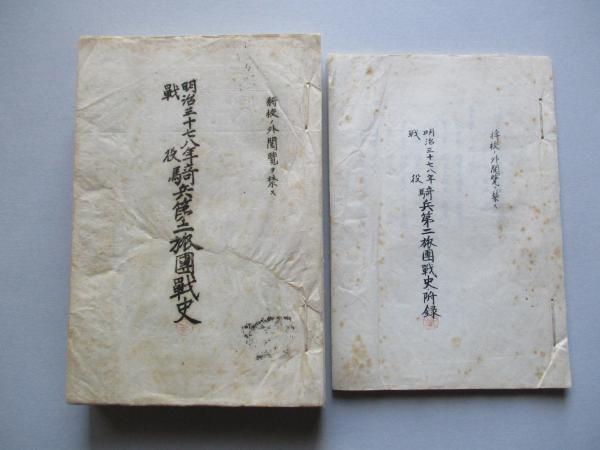 将校ノ外閲覧ヲ禁ス
明治三十七八年
戰役
騎兵第二旅團戰史
将校ノ外閲覧ヲ禁ス
明治三十七八年
戰役
騎兵第二旅團戰史附録